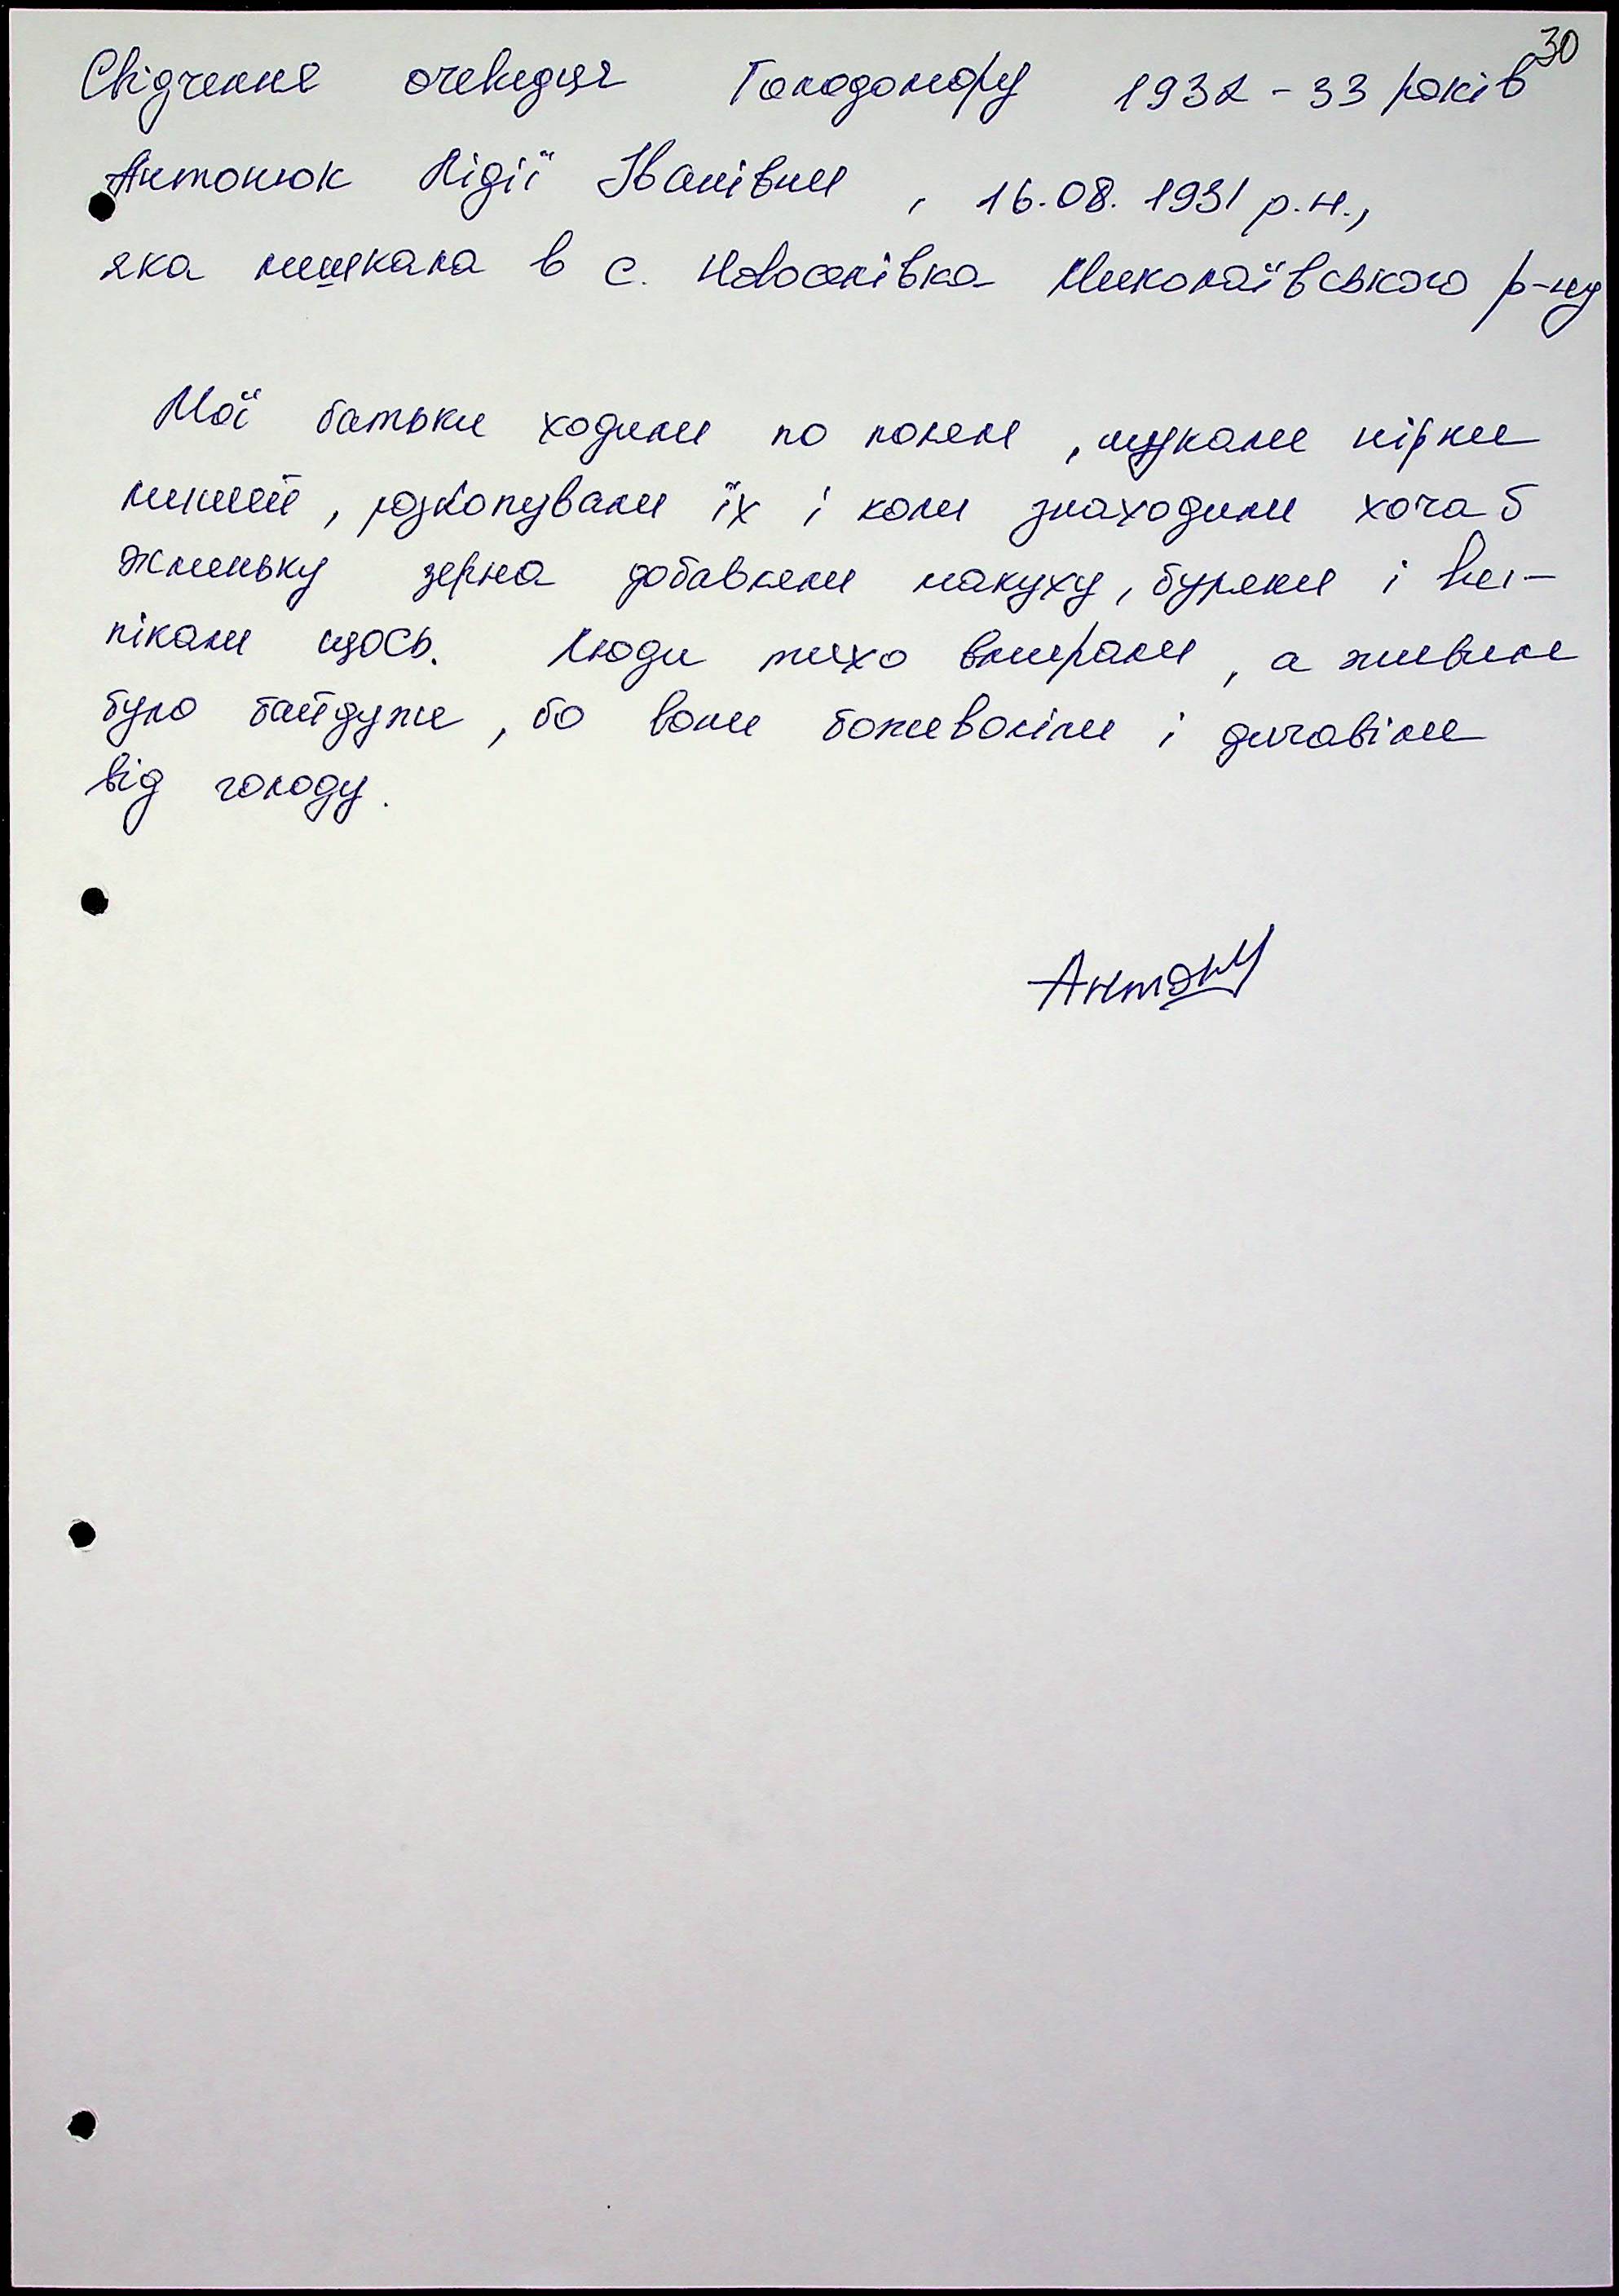 30
Свідчення очевидця Голодомору 1932-33 років
Антонюк Лідії Іванівни, 16.08.1931 р.н.,
яка мешкала в с. Новоселівка Миколаївського р-ну
Мої батьки ходили по полям, шукали нірки
мишей, розкопували їх і коли знаходили хоча б
жменьку зерна добавляли макуху, буряки і ви-
пікали щось. Люди тихо вмирали, а живим
було байдуже, бо вони божеволіли і дичавіли
від голоду.
Антоню